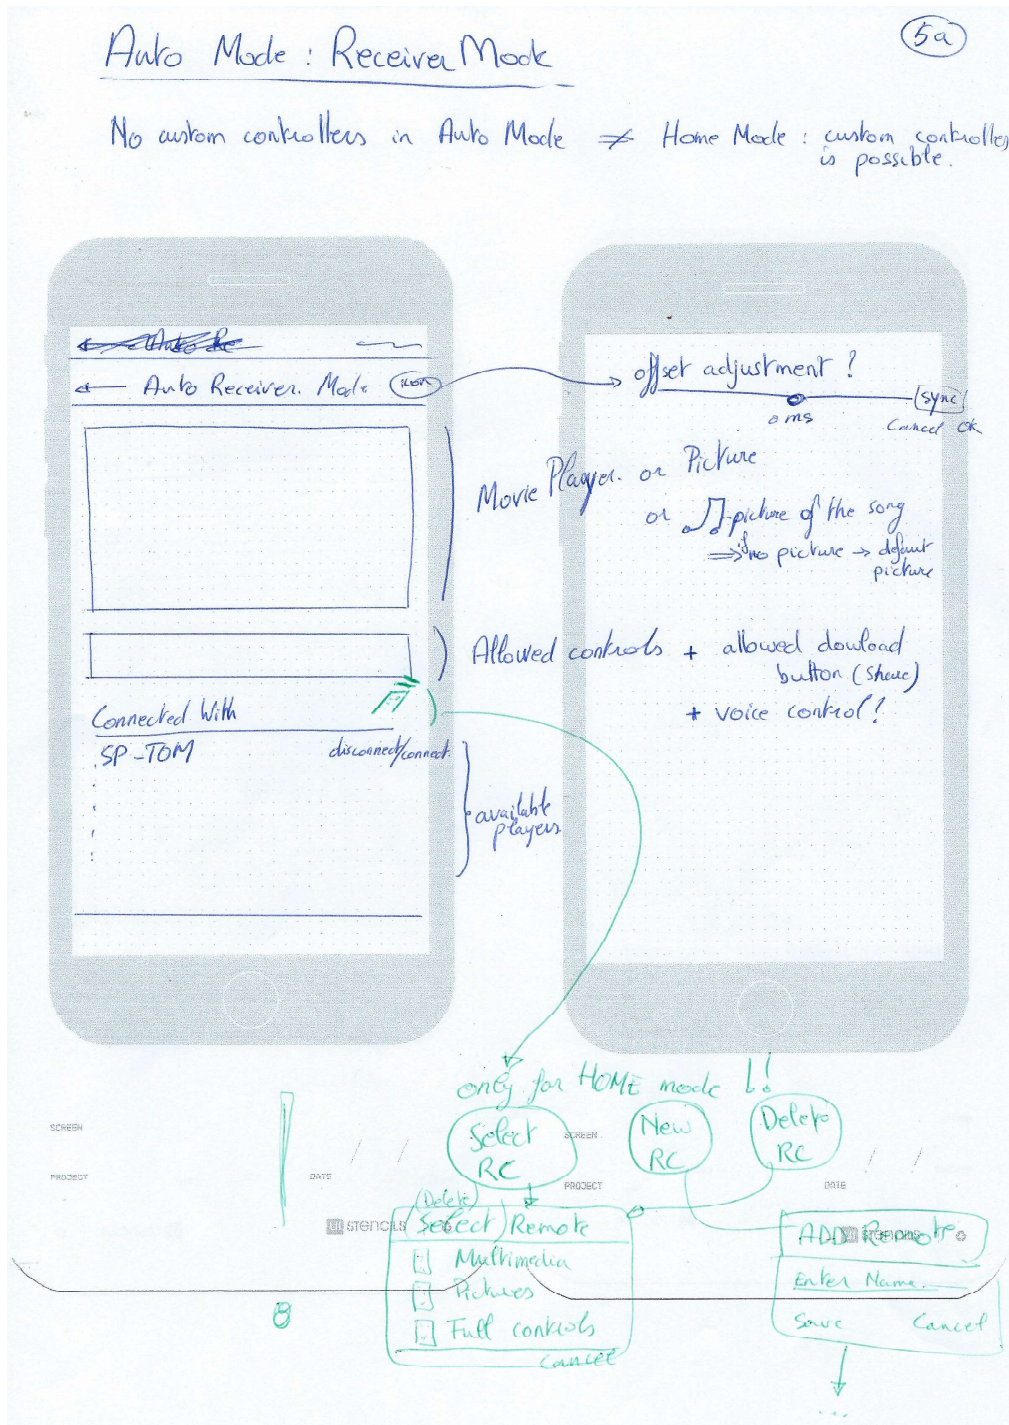 5a
Auto Mode : Receiver Mode
No custom controllers in Auto Mode ≠ Home Mode : custom controllers
is possible.
← Auto Re
← Auto Receiver. Mode icon
offset adjustment ?
0 ms
sync
Cancel OK
Movie Player. or Picture
or ♫ picture of the song
⇒ if no picture → default
picture
Allowed controls + allowed dowload
button (Share)
+ voice control?
Connected With
SP-TOM disconnect/connect.
available
players
only for HOME mode !!
Select
RC
New
RC
Delete
RC
SCREEN
PROJECT
DATE / /
UI STENCILS
SCREEN
PROJECT
DATE / /
UI STENCILS
(Delete)
Select Remote
Multimedia
Pictures
Full controls
Cancel
ADD Remote
Enter Name.
Save Cancel
...
8